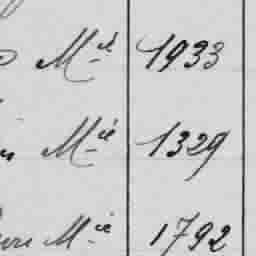 Mie 1933
Mie 1329
Mie 1792